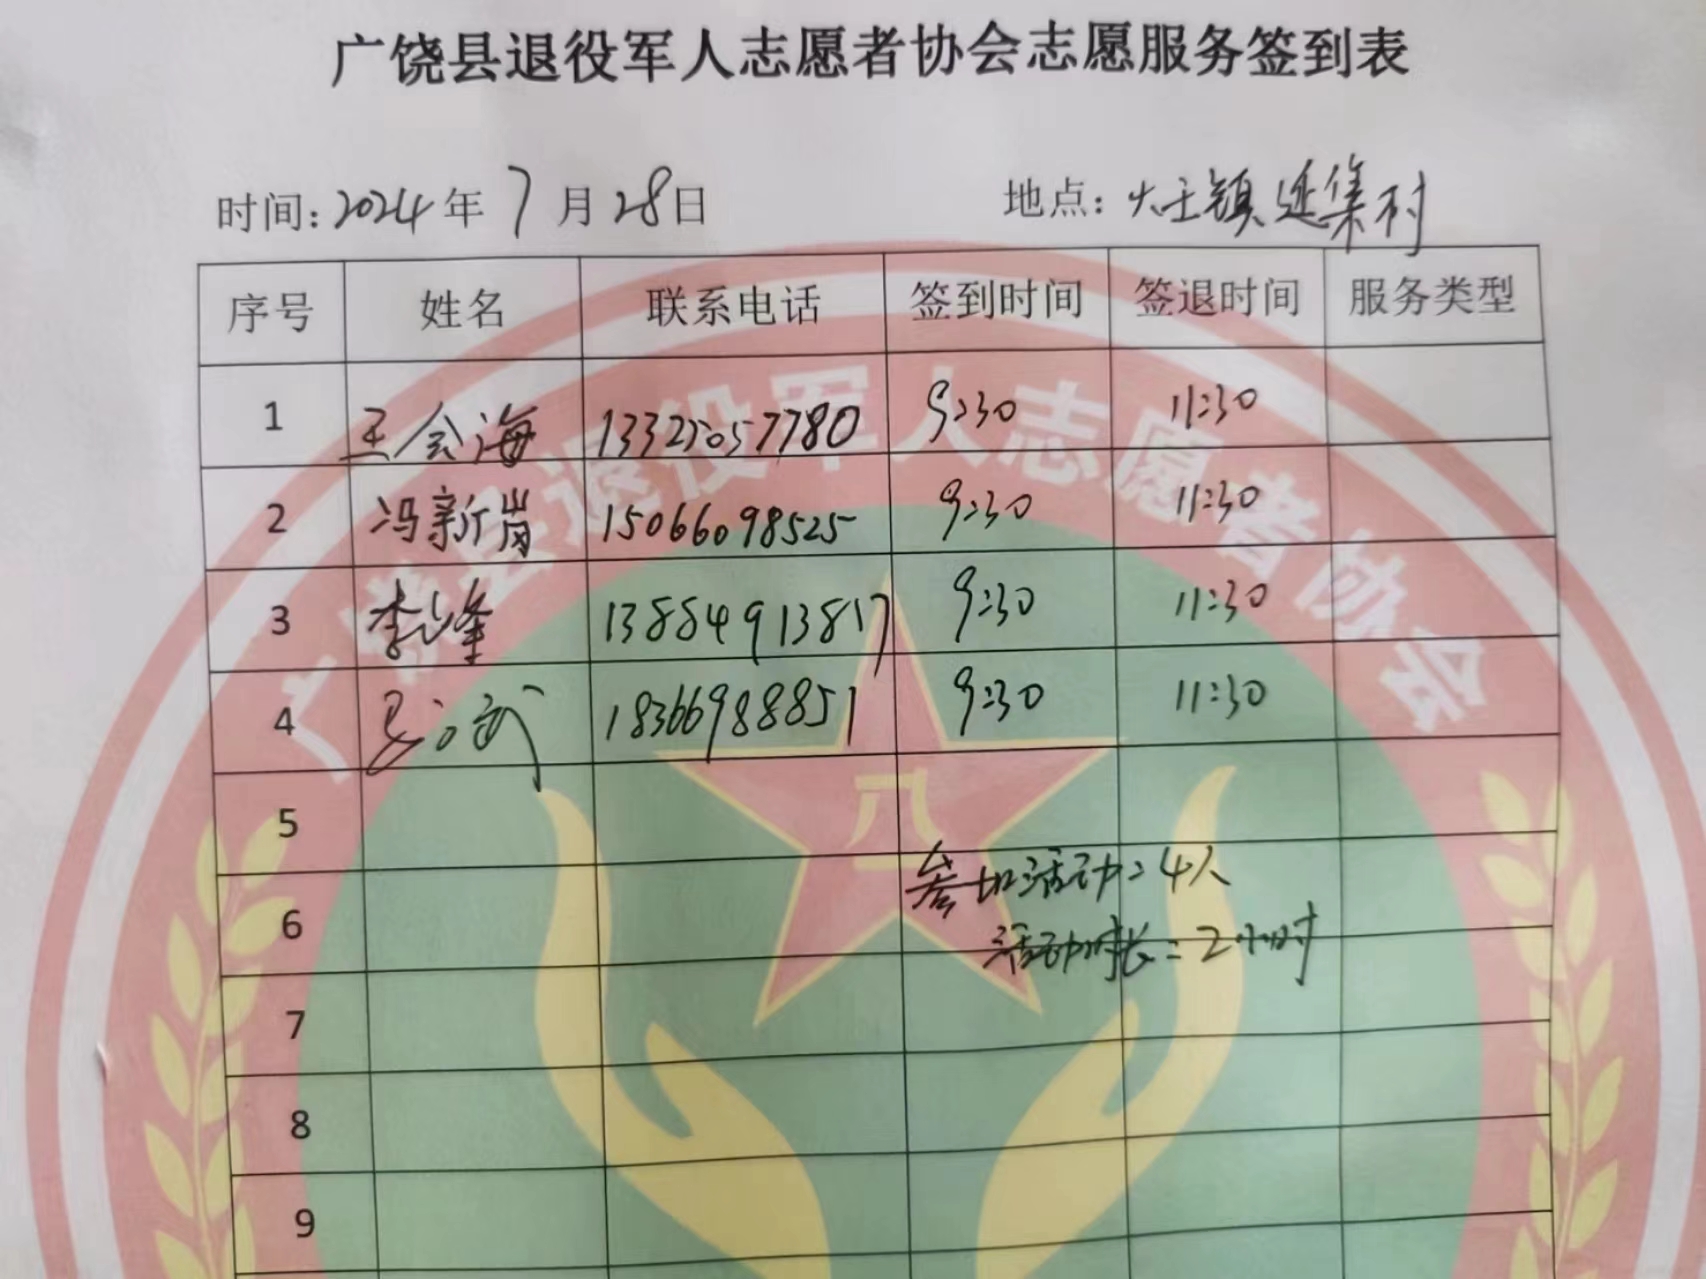 广饶县退役军人志愿者协会志愿服务签到表
时间: 2024 年 7 月 28 日 地点: 大王镇延集村
序号 姓名 联系电话 签到时间 签退时间 服务类型
1 王会海 13325057780 9:30 11:30
2 冯新岗 15066098525 9:30 11:30
3 李峰 13884913817 9:30 11:30
4 18366988851 9:30 11:30
5
6
参加活动: 4人
活动时长: 2小时
7
8
9
广饶县退役军人志愿者协会
八一